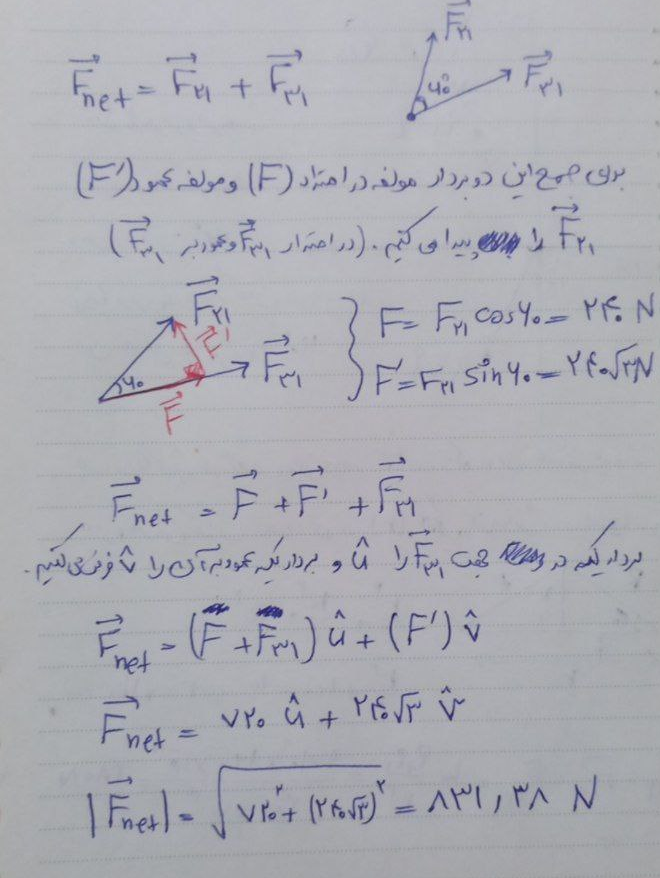 F⃗net = F⃗۲۱ + F⃗۳۱
F⃗۲۱
۶۰°
F⃗۳۱
برای جمع این دو بردار مولفه در امتداد (F) و مولفه عمود (F')
F⃗۲۱ را پیدا می کنیم. (در امتداد F⃗۳۱ و عمود بر F⃗۳۱)
F⃗۲۱
F⃗'
۶۰
F⃗۳۱
F⃗
F = F۲۱ cos۶۰ = ۲۴۰ N
F' = F۲۱ sin۶۰° = ۲۴۰√۳ N
F⃗net = F⃗ + F⃗' + F⃗۳۱
بردار یکه در جهت F⃗۳۱ را û و بردار یکه عمود بر آن را v̂ فرض می کنیم.
F⃗net = (F + F۳۱) û + (F') v̂
F⃗net = ۷۲۰ û + ۲۴۰√۳ v̂
|F⃗net| = √۷۲۰² + (۲۴۰√۳)² = ۸۳۱,۳۸ N